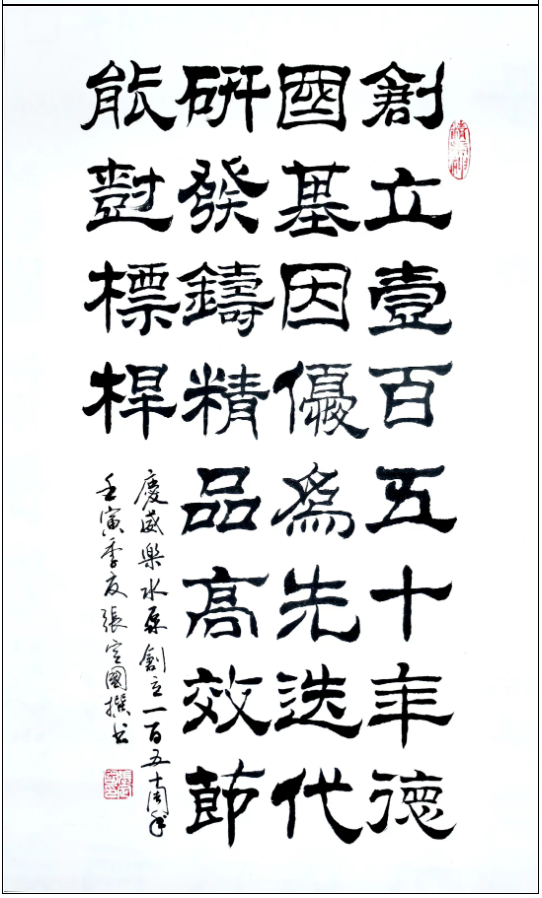 創立壹百五十年德
國基因優爲先迭代
研發鑄精品高效節
能對標桿
慶威樂水泵創立一百五十周年
壬寅季夏張定國撰書